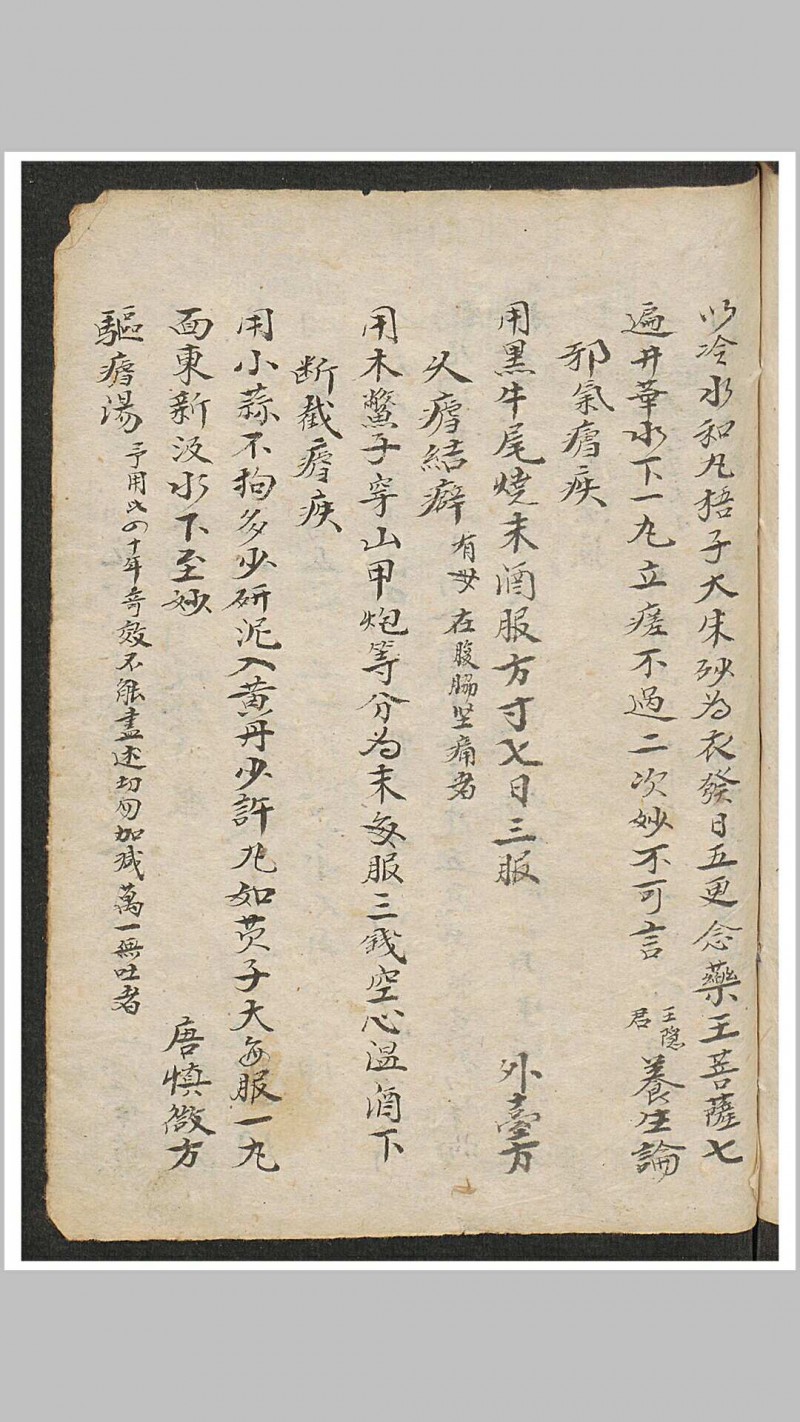 以冷水和丸梧子大朱砂為衣發日五更念藥王菩薩七
遍井華水下一丸立瘥不過二次妙不可言 王隐君 養生論
邪氣瘧疾
用黑牛尾燒末酒服方寸匕日三服 外臺方
久瘧結癖 有母在腹脇堅痛者
用木鱉子穿山甲炮等分為末每服三錢空心温酒下
断截瘧疾
用小蒜不拘多少研泥入黄丹少許丸如芡子大每服一丸
面東新汲水下至妙 唐慎微方
驅瘧湯 予用此四十年奇效不能盡述切勿加减萬一無吐者